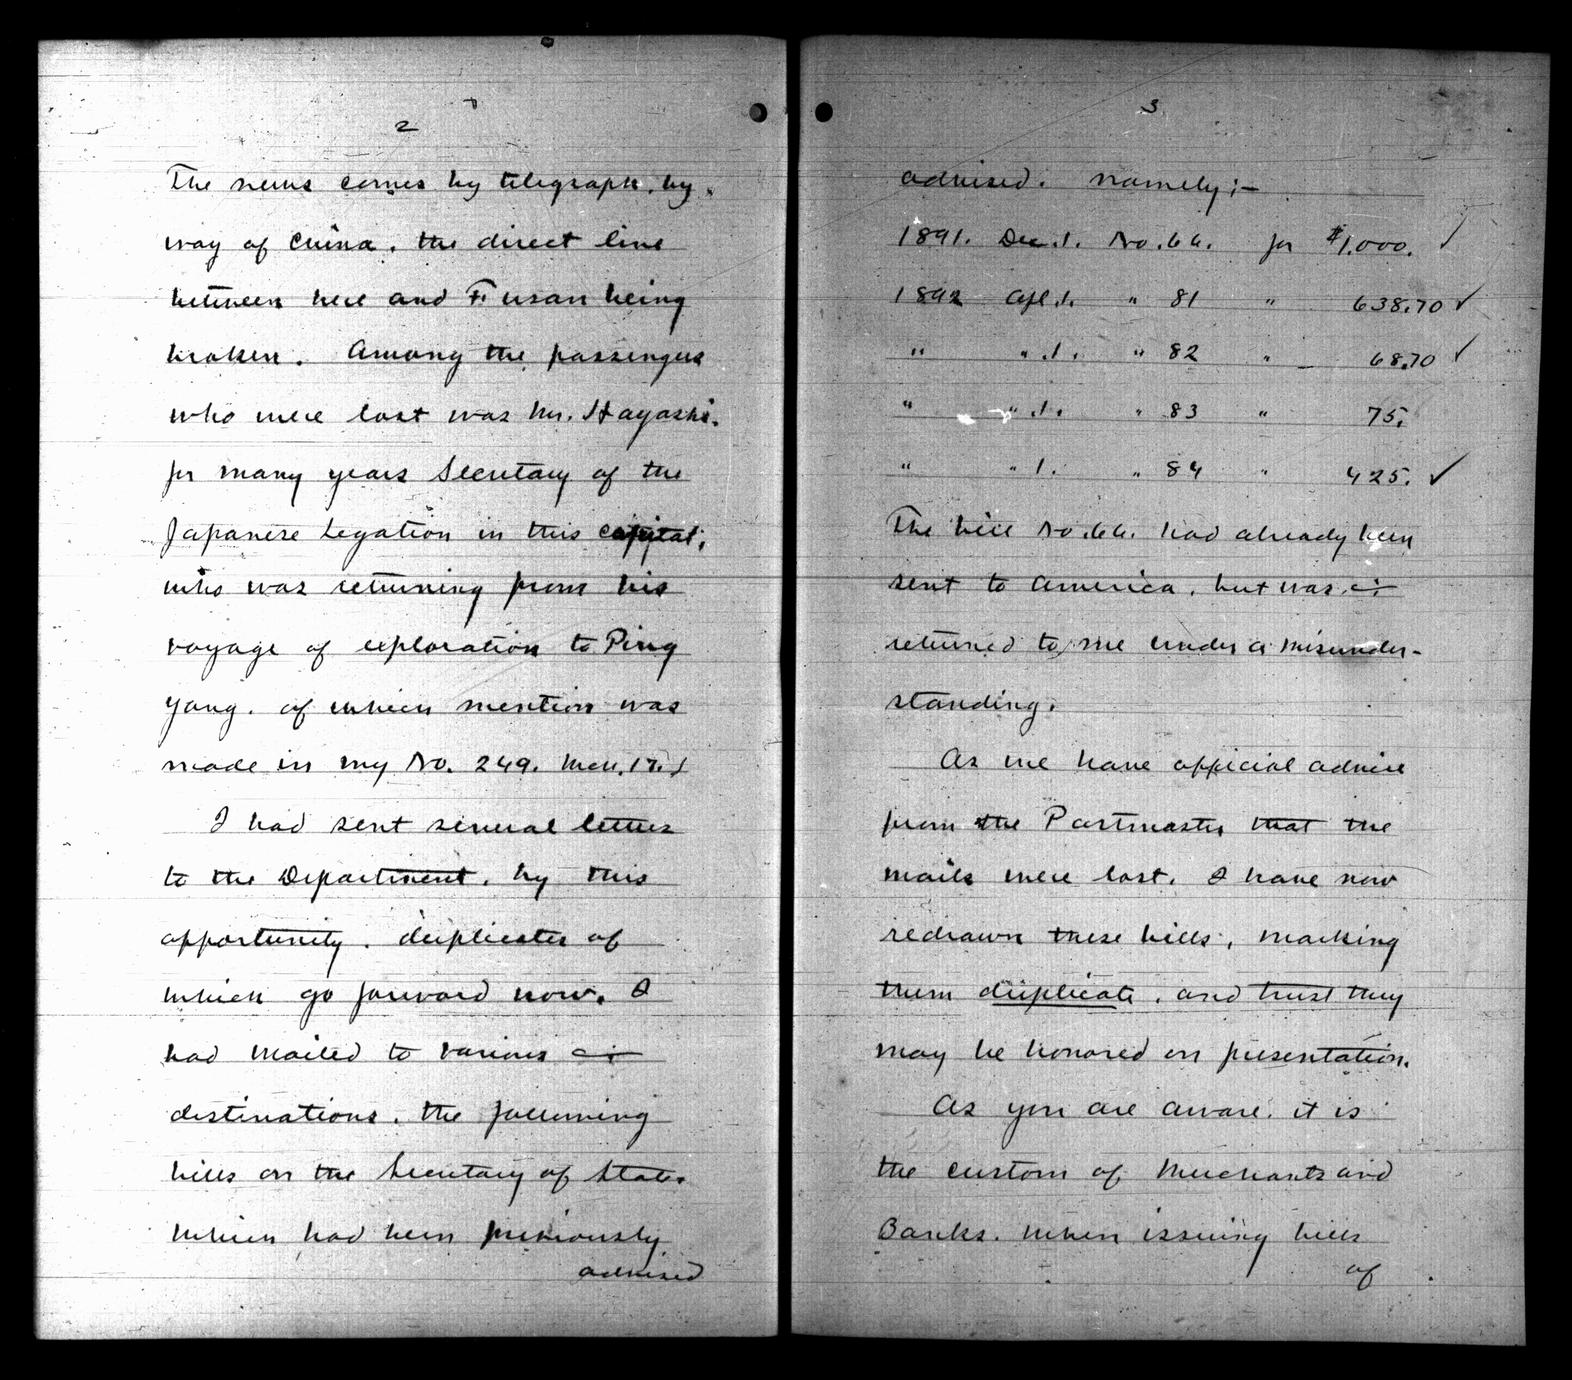 2
The news comes by telegraph, by
way of China, the direct line
between here and Fusan being
broken. Among the passengers
who were lost was Mr. Hayashi.
for many years Secretary of the
Japanese Legation in this capital,
who was returning from his
voyage of exploration to Ping
Yang. of which mention was
made in my No. 249. Mch. 17.
I had sent several letters
to the Department, by this
opportunity. duplicates of
which go forward now. I
had mailed to various
destinations, the following
bills on the Secretary of State.
which had been previously
advised
3
advised. namely;-
1891. Dec. 1. No. 66. for $1.000. ✓
1892 Apl. 1. " 81 " 638.70 ✓
" " 1. " 82 " 68.70 ✓
" " 1. " 83 " 75.
" " 1. " 84 " 425. ✓
The bill No. 66. had already been
sent to America, but was
returned to me under a misunder-
standing.
As we have official advise
from the Postmaster that the
mails were lost, I have now
redrawn these bills, marking
them duplicate, and trust they
may be honored on presentation.
As you are aware, it is
the custom of Merchants and
Banks. when issuing bills
of